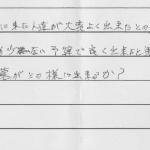 に来た人達が大変よく出来たとの
少ない予算で良く出来たと
墓がどの様に出来るか?